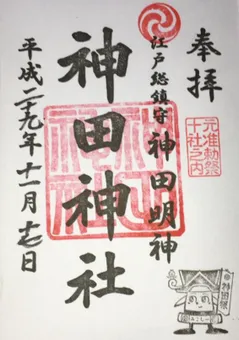 奉拝
元准勅祭
十社之内
江戸総鎮守 神田明神
神田神社
平成二十九年十一月十七日